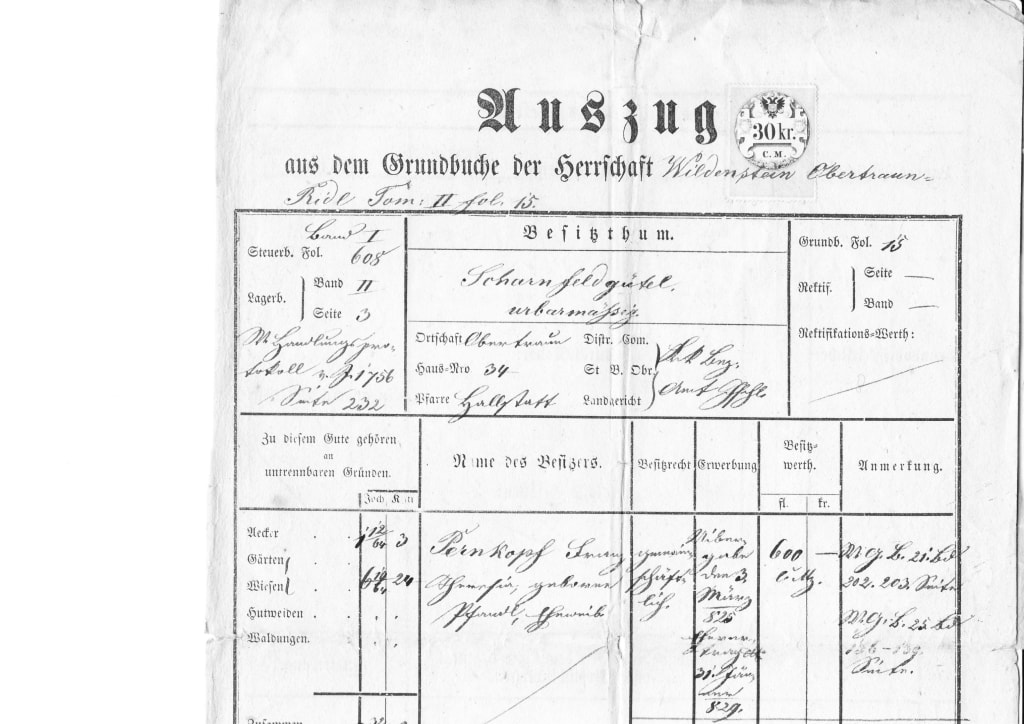 Auszug
30 kr.
C. M.
aus dem Grundbuche der Herrschaft Wildenstein Obertraun-
Ridl Tom: II fol. 15.
Band I
Steuerb. Fol. 608
Lagerb. Band II
Seite 3
W Handlungspro-
tokoll v. J. 1756
Seite 232
Besitzthum.
Scharnfeldgütel.
urbarmäßig.
Ortschaft Obertraun Distr. Com.
Haus-Nro 34 St V. Obr.
Pfarre Hallstatt Landgericht
k k Bez.
Amt Ischl
Grundb. Fol. 15
Rektif. Seite —
Band —
Rektifikations-Werth:
Zu diesem Gute gehören
an
untrennbaren Gründen.
Joch
Name des Besizers.
Besitzrecht
Erwerbung
Besitz-
werth.
fl. kr.
Anmerkung.
Aecker 1 12/64 3
Gärten
Wiesen 24
Hutweiden
Waldungen.
Zusammen
Pernkopf Franz
Theresia, geborne
Pfandl, Eheweib
gemein-
schaft-
lich.
Über-
gabe
den 3.
März
825
31. Jän-
ner
829.
600 —
W. G. B. 21. Bd
202. 203. Seite
W. G. B. 25. Bd
136-139.
Seite.